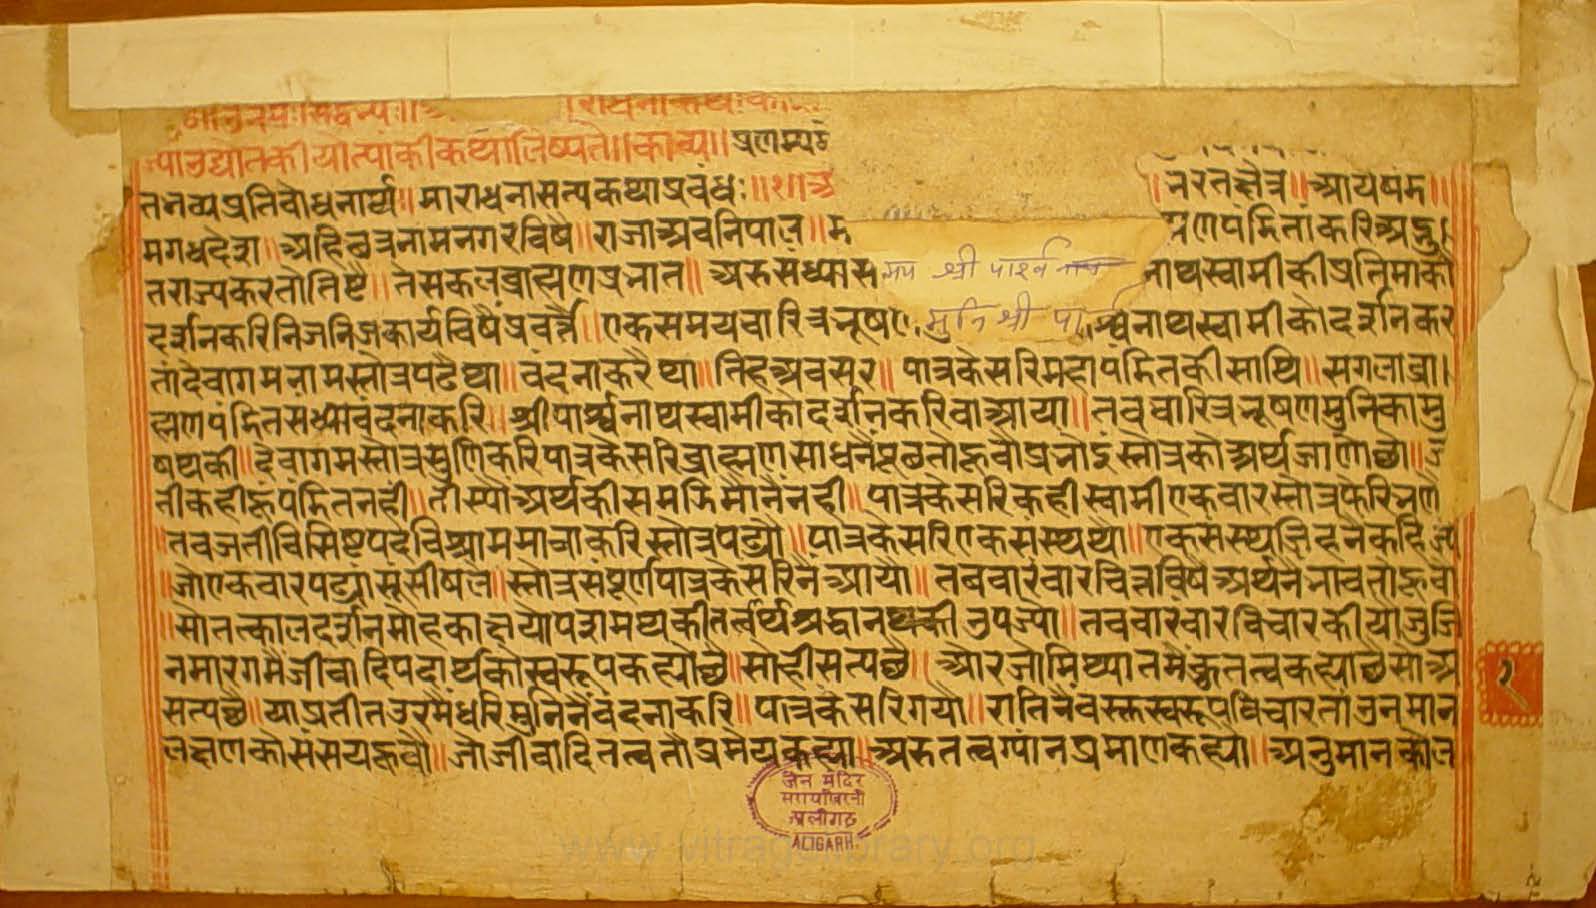 कीकथालिष्यते॥काव्य॥प्रणम्य
तनव्यप्रतिबोधनार्थ॥माराधनासत्यकथाप्रबंधः॥१॥
भरतक्षेत्र॥आर्यषंम॥
मगधदेश॥अहिछत्रनामनगरविषै॥राजाअवनिपाल॥
तराज्यकरतोतिष्टै॥तेसकलब्राह्मणप्रभात॥अरुसंध्यास मय श्री पार्श्व नाथस्वामीकीप्रतिमाको
दर्शनकरिनिजनिजकार्यविषैप्रवर्त्तै॥एकसमयचारित्रभूषण मुनि श्री पा र्श्वनाथस्वामीकोदर्शनकर
तांदेवागमनामस्तोत्रपढैथा॥वंदनाकरैथा॥तिहअवसर॥पात्रकेसरिमहापंडितकीसाथि॥सगलाब्रा
ह्मणपंडितसंध्यावंदनाकरि॥श्रीपार्श्वनाथस्वामीकोदर्शनकरिवाआया॥तवचारित्रभूषणमुनिकामु
षथकी॥देवागमस्तोत्रसुणिकरिपात्रकेसरिब्राह्मणसाधनैपूछतोहूवौप्रभोइंस्तोत्रकोअर्थजाणोछो॥
नीकहीहूंपंडितनहीं॥तीस्योअर्थकीसमझिमौनैनही॥पात्रकेसरिकहीस्वामीएकवारस्तोत्रफेरिभणै
तवजतीविसिष्टपदविश्राममात्राकरिस्तोत्रपढ्यौ॥पात्रकेसरिएकसंस्थथौ॥एकसंस्थजिहनैकहि
॥जोएकवारपढ्यासूंसीषले॥स्तोत्रसंपूर्णपात्रकेसरिनैआयो॥तबबारंवारचित्तविषैअर्थनैभावतोहूवो
॥सोतत्कालदर्शनमोहकाक्षयोपशमथकीतत्वार्थश्रद्धानउपज्यो॥तववारंवारविचारकीयोजुजि
नमारगमैजीवादिपदार्थकोस्वरूपकह्योछै॥सोहीसत्यछै॥औरजोमिथ्यातमैंकुतत्वकह्योछैसोअ
सत्यछै॥याप्रतीतउरमैधरिमुनिनैवंदनाकरि॥पात्रकेसरिगयो॥रातिनैवस्तुस्वरूपविचारतांउनमान
लक्षणकोसंसयहूवौ॥जोजीवादितत्वतोप्रमेयकह्या॥अरुतत्वग्यांनप्रमाणकह्यौ॥अनुमानकोल
१
जैन मंदिर
अलीगढ
ALIGARH
www.vitragvlibrary.org